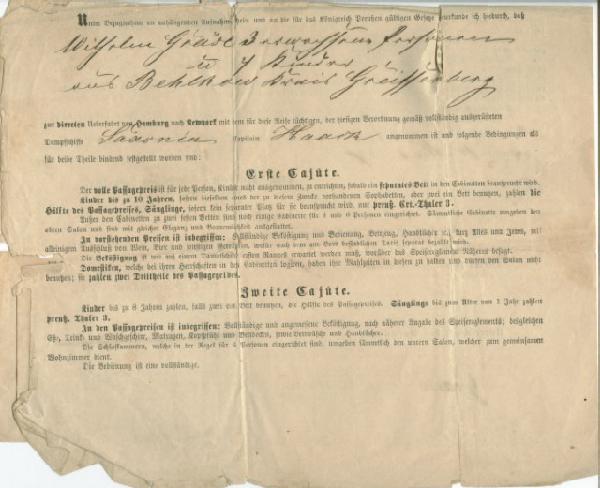 Unter Bezugnahme an vorhängenden Aufnahme Schein und an die für das Königreich Preußen gültigen Gesetze beurkunde ich hiedurch, daß
Wilhelm 3 erwachsene Personen
u Kinder
aus Kreis Greiffenberg
zur directen Ueberfahrt von Hamburg nach Newyork mit dem für diese Reise tüchtigen, der hiesigen Verordnung gemäß vollständig ausgerüsteten
Dampfschiffe Saxonia Capitain Haack angenommen ist und folgende Bedingungen als
für beide Theile bindend festgestellt worden sind:
Erste Cajüte.
Der volle Passagepreis ist für jede Person, Kinder nicht ausgenommen, zu entrichten, sobald ein separates Bett in den Cabinetten beansprucht wird.
Kinder bis zu 10 Jahren, sofern dieselben eines der zu diesem Zwecke vorhandenen Sophabetten, oder zwei ein Bett benutzen, zahlen die
Hälfte des Passagepreises, Säuglinge, sofern kein separater Platz für sie beansprucht wird, nur preuß. Crt.-Thaler 3.
Außer den Cabinetten zu zwei festen Betten sind noch einige Cabinette für 4 und 6 Personen eingerichtet. Sämmtliche Cabinette umgeben den
obern Salon und sind mit gleicher Eleganz und Bequemlichkeit ausgestattet.
In vorstehenden Preisen ist inbegriffen: Vollständige Beköstigung und Bedienung, Bettzeug, Handtücher ec., kurz Alles und Jedes, mit
alleinigem Ausschluß von Wein, Bier und sonstigen Getränken, wofür nach dem am Bord befindlichen Tarif separat bezahlt wird.
Die Beköstigung ist wie sie auf einem Dampfschiffe ersten Ranges erwartet werden muß, worüber das Speisereglement Näheres besagt.
Domestiken, welche bei ihren Herrschaften in den Cabinetten logiren, haben ihre Mahlzeiten in diesen zu halten und dürfen den Salon nicht
benutzen; sie zahlen zwei Drittheile des Passagegeldes.
Zweite Cajüte.
Kinder bis zu 8 Jahren zahlen, falls zwei ein Bett benutzen, die Hälfte des Passagepreises. Säuglinge bis zum Alter von 1 Jahr zahlen
preuß. Thaler 3.
In den Passagepreisen ist inbegriffen: Vollständige und angemessene Beköstigung, nach näherer Angabe des Speisereglements; desgleichen
Eß-, Trink- und Waschgeschirr, Matratzen, Kopfpfühle und Bettdecken, sowie Bettwäsche und Handtücher.
Die Schlafkammern, welche in der Regel für 4 Personen eingerichtet sind, umgeben sämmtlich den untern Salon, welcher zum gemeinsamen
Wohnzimmer dient.
Die Bedienung ist eine vollständige.